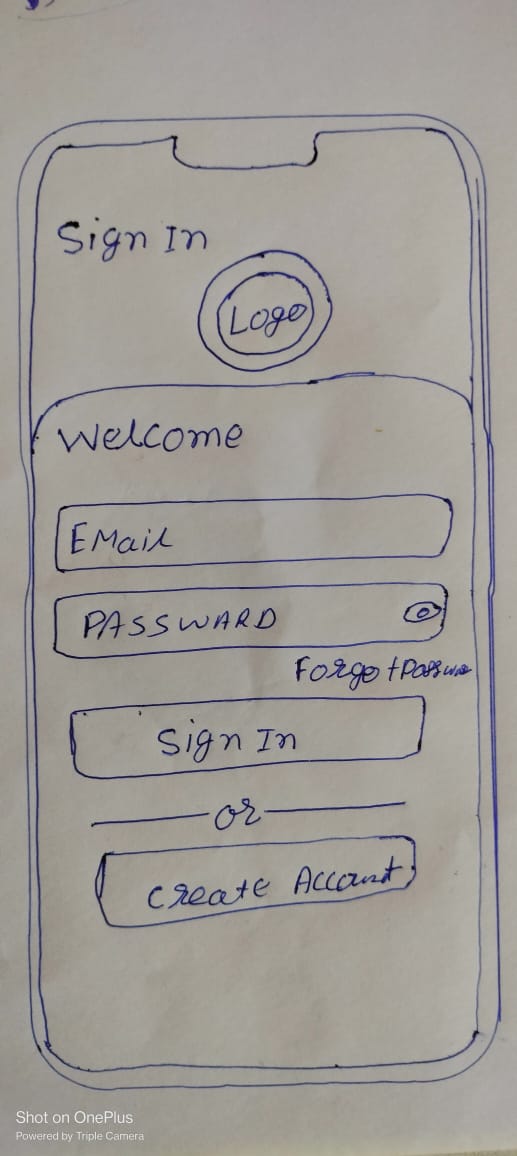 Sign In
Logo
Welcome
EMail
PASSWARD
Sign In
or
Create Account
Shot on OnePlus
Powered by Triple Camera